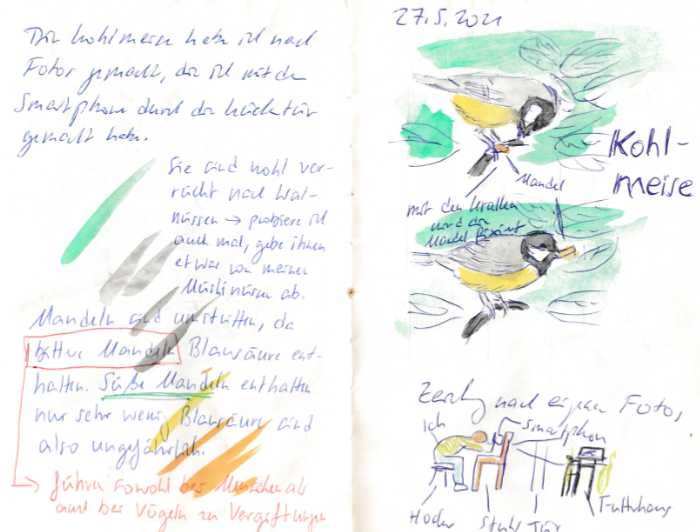 Die Kohlmeise habe ich nach
Fotos gemacht, die ich mit dem
Smartphone durch die Küchentür
gemacht habe.
Sie sind wohl ver-
rückt nach Wal-
nüssen → probiere ich
auch mal, gebe ihnen
etwas von meinen
Müslinüssen ab.
Mandeln sind umstritten, da
bittere Mandeln Blausäure ent-
halten. Süße Mandeln enthalten
nur sehr wenig Blausäure und sind
also ungefährlich.
→ führen sowohl bei Menschen als
auch bei Vögeln zu Vergiftungen
27.5.2021
Kohl-
meise
Mandel
mit den Krallen
wird die
Mandel fixiert
nach eigenen Fotos
Ich
Smartphon
Futterhaus
Hocker
Stuhl
Tür